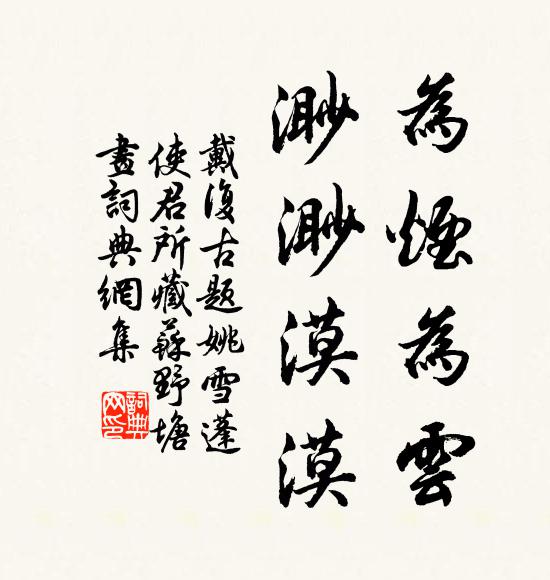 為煙為雲
渺渺漠漠
戴復古題姚雪蓬
使君所藏蘇野塘
畫詞典網集
詞典
网印